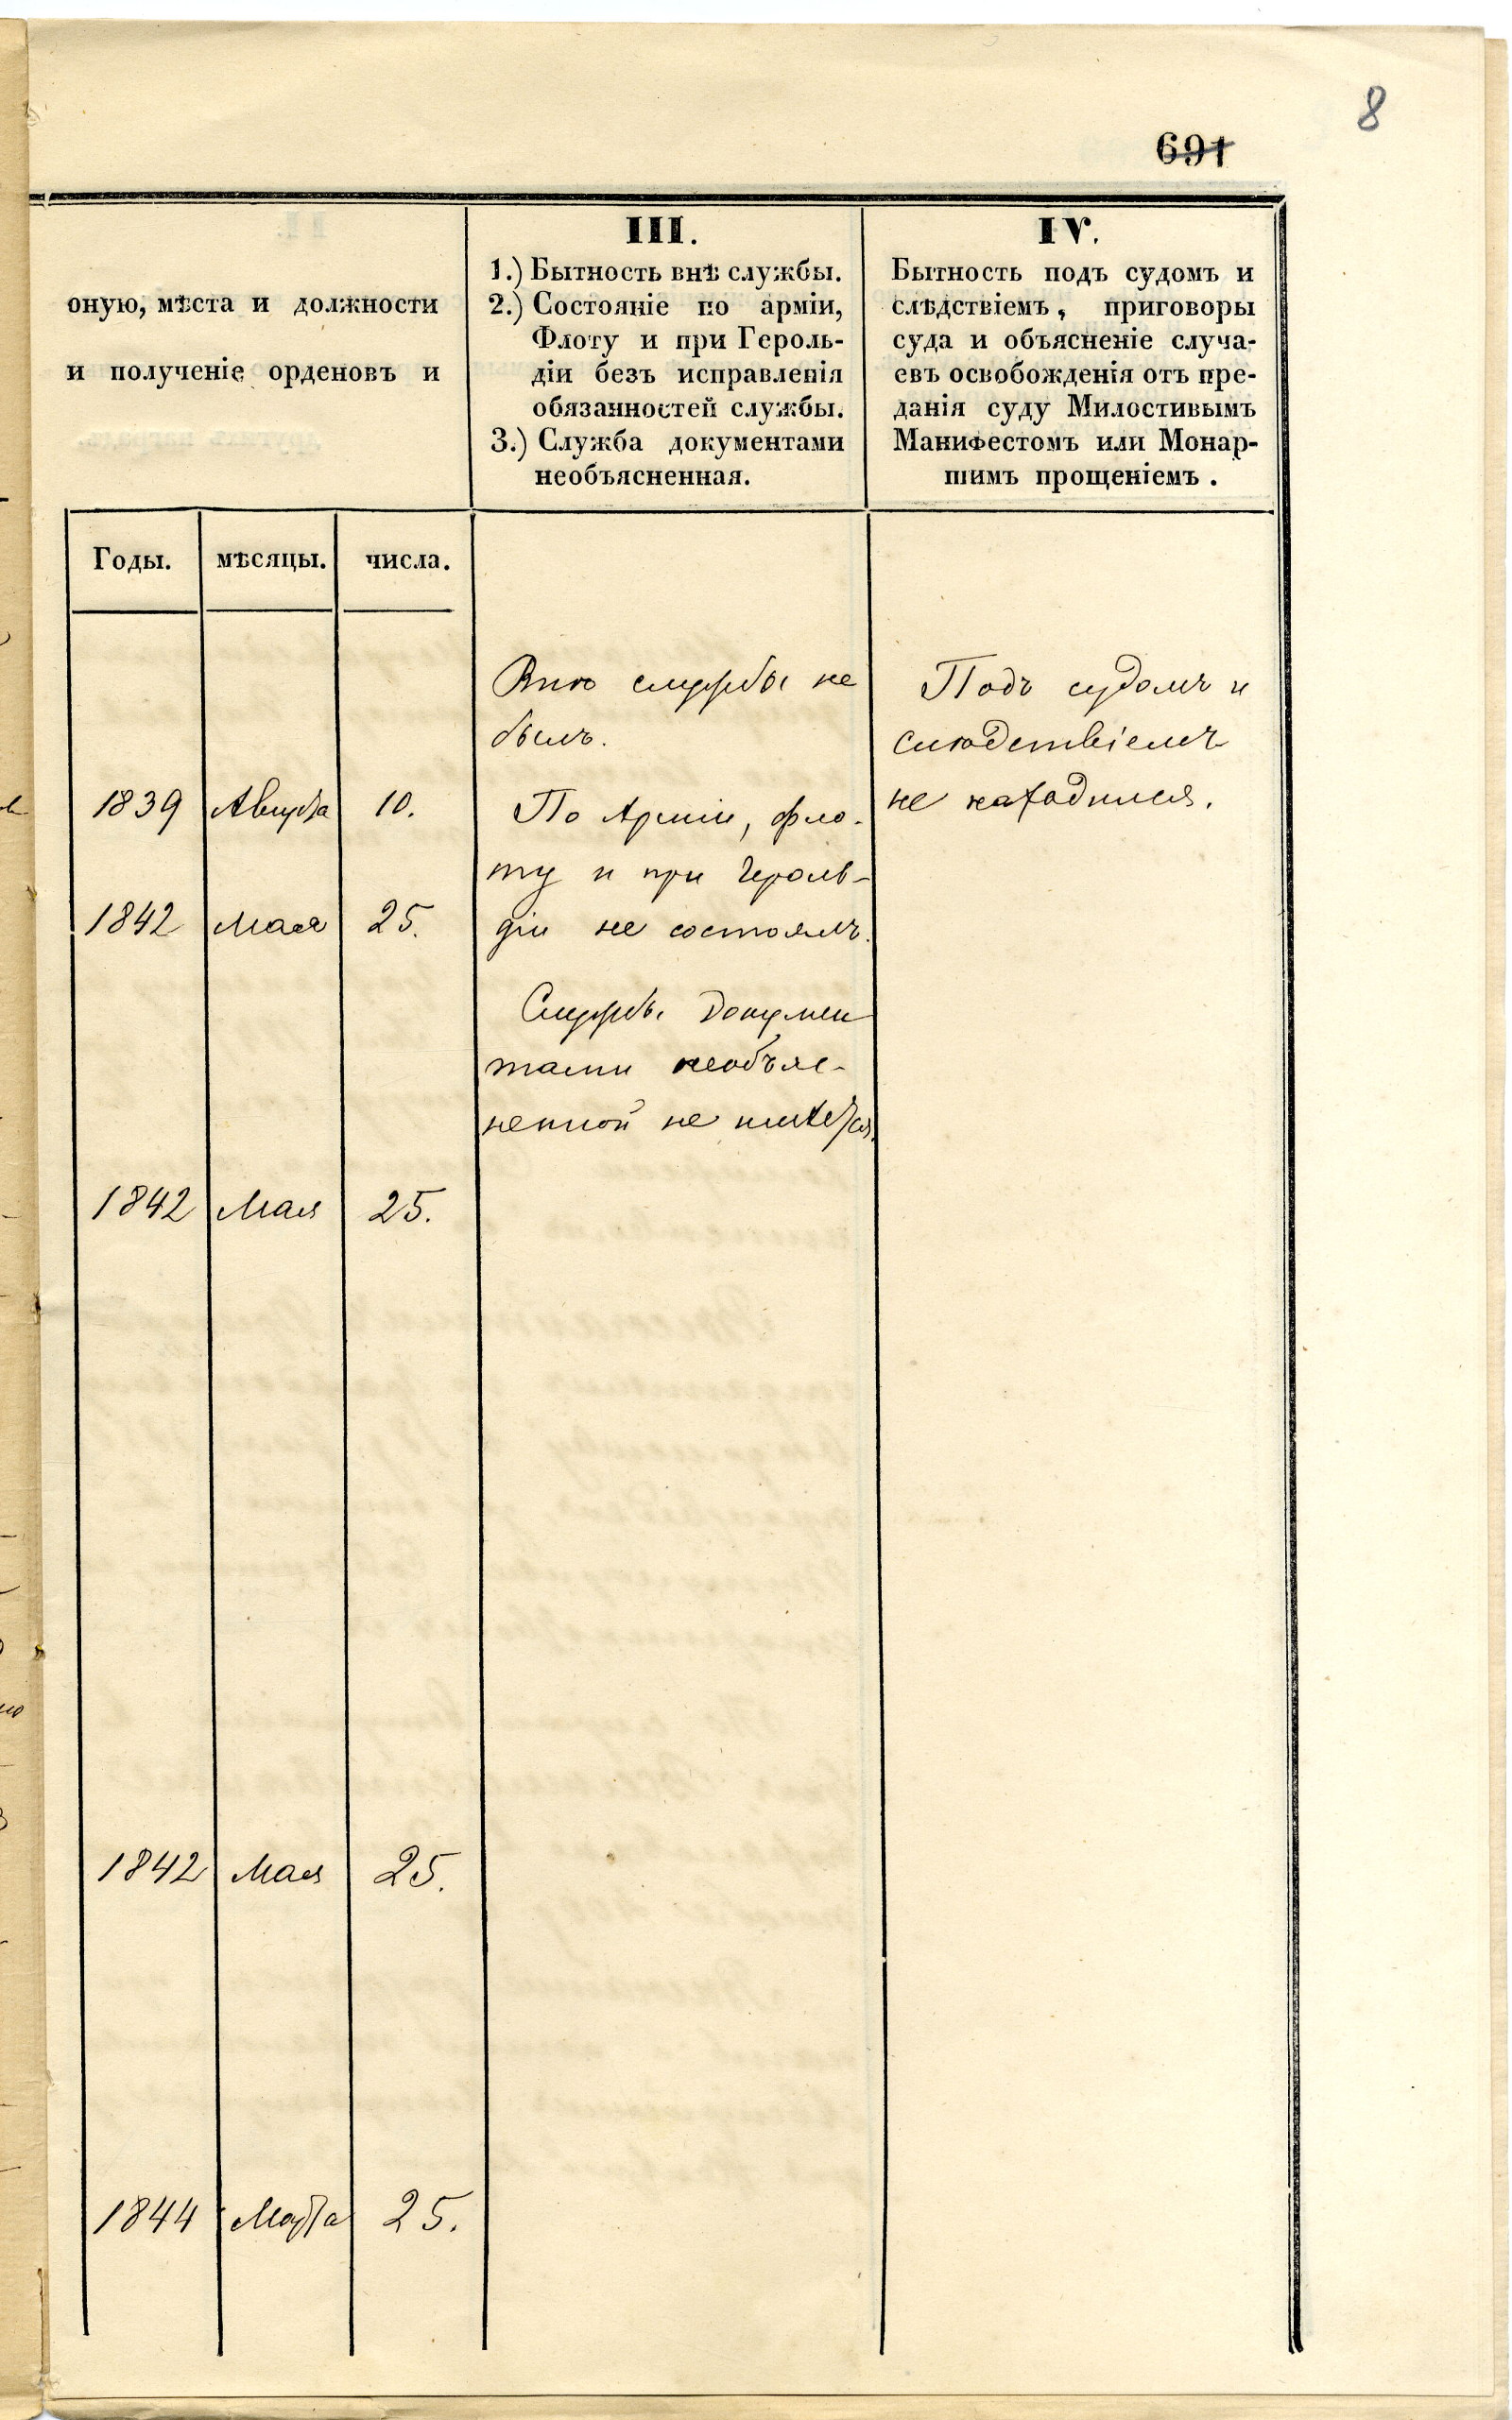 8
691
оную, мѣста и должности
и полученіе орденовъ и
III.
1.) Бытность внѣ службы.
2.) Состояніе по арміи,
Флоту и при Героль-
діи безъ исправленія
обязанностей службы.
3.) Служба документами
необъясненная.
IV.
Бытность подъ судомъ и
слѣдствіемъ, приговоры
суда и объясненіе случа-
евъ освобожденія отъ пре-
данія суду Милостивымъ
Манифестомъ или Монар-
шимъ прощеніемъ.
Годы. мѣсяцы. числа.
1839 Августа 10.
1842 Мая 25.
1842 Мая 25.
1842 Мая 25.
1844 Марта 25.
Внѣ службы не
былъ.
По Арміи, фло-
ту и при Героль-
діи не состоялъ.
Службы докумен
тами необъяс-
ненной не имѣется.
Подъ судомъ и
слѣдствіемъ
не находился.